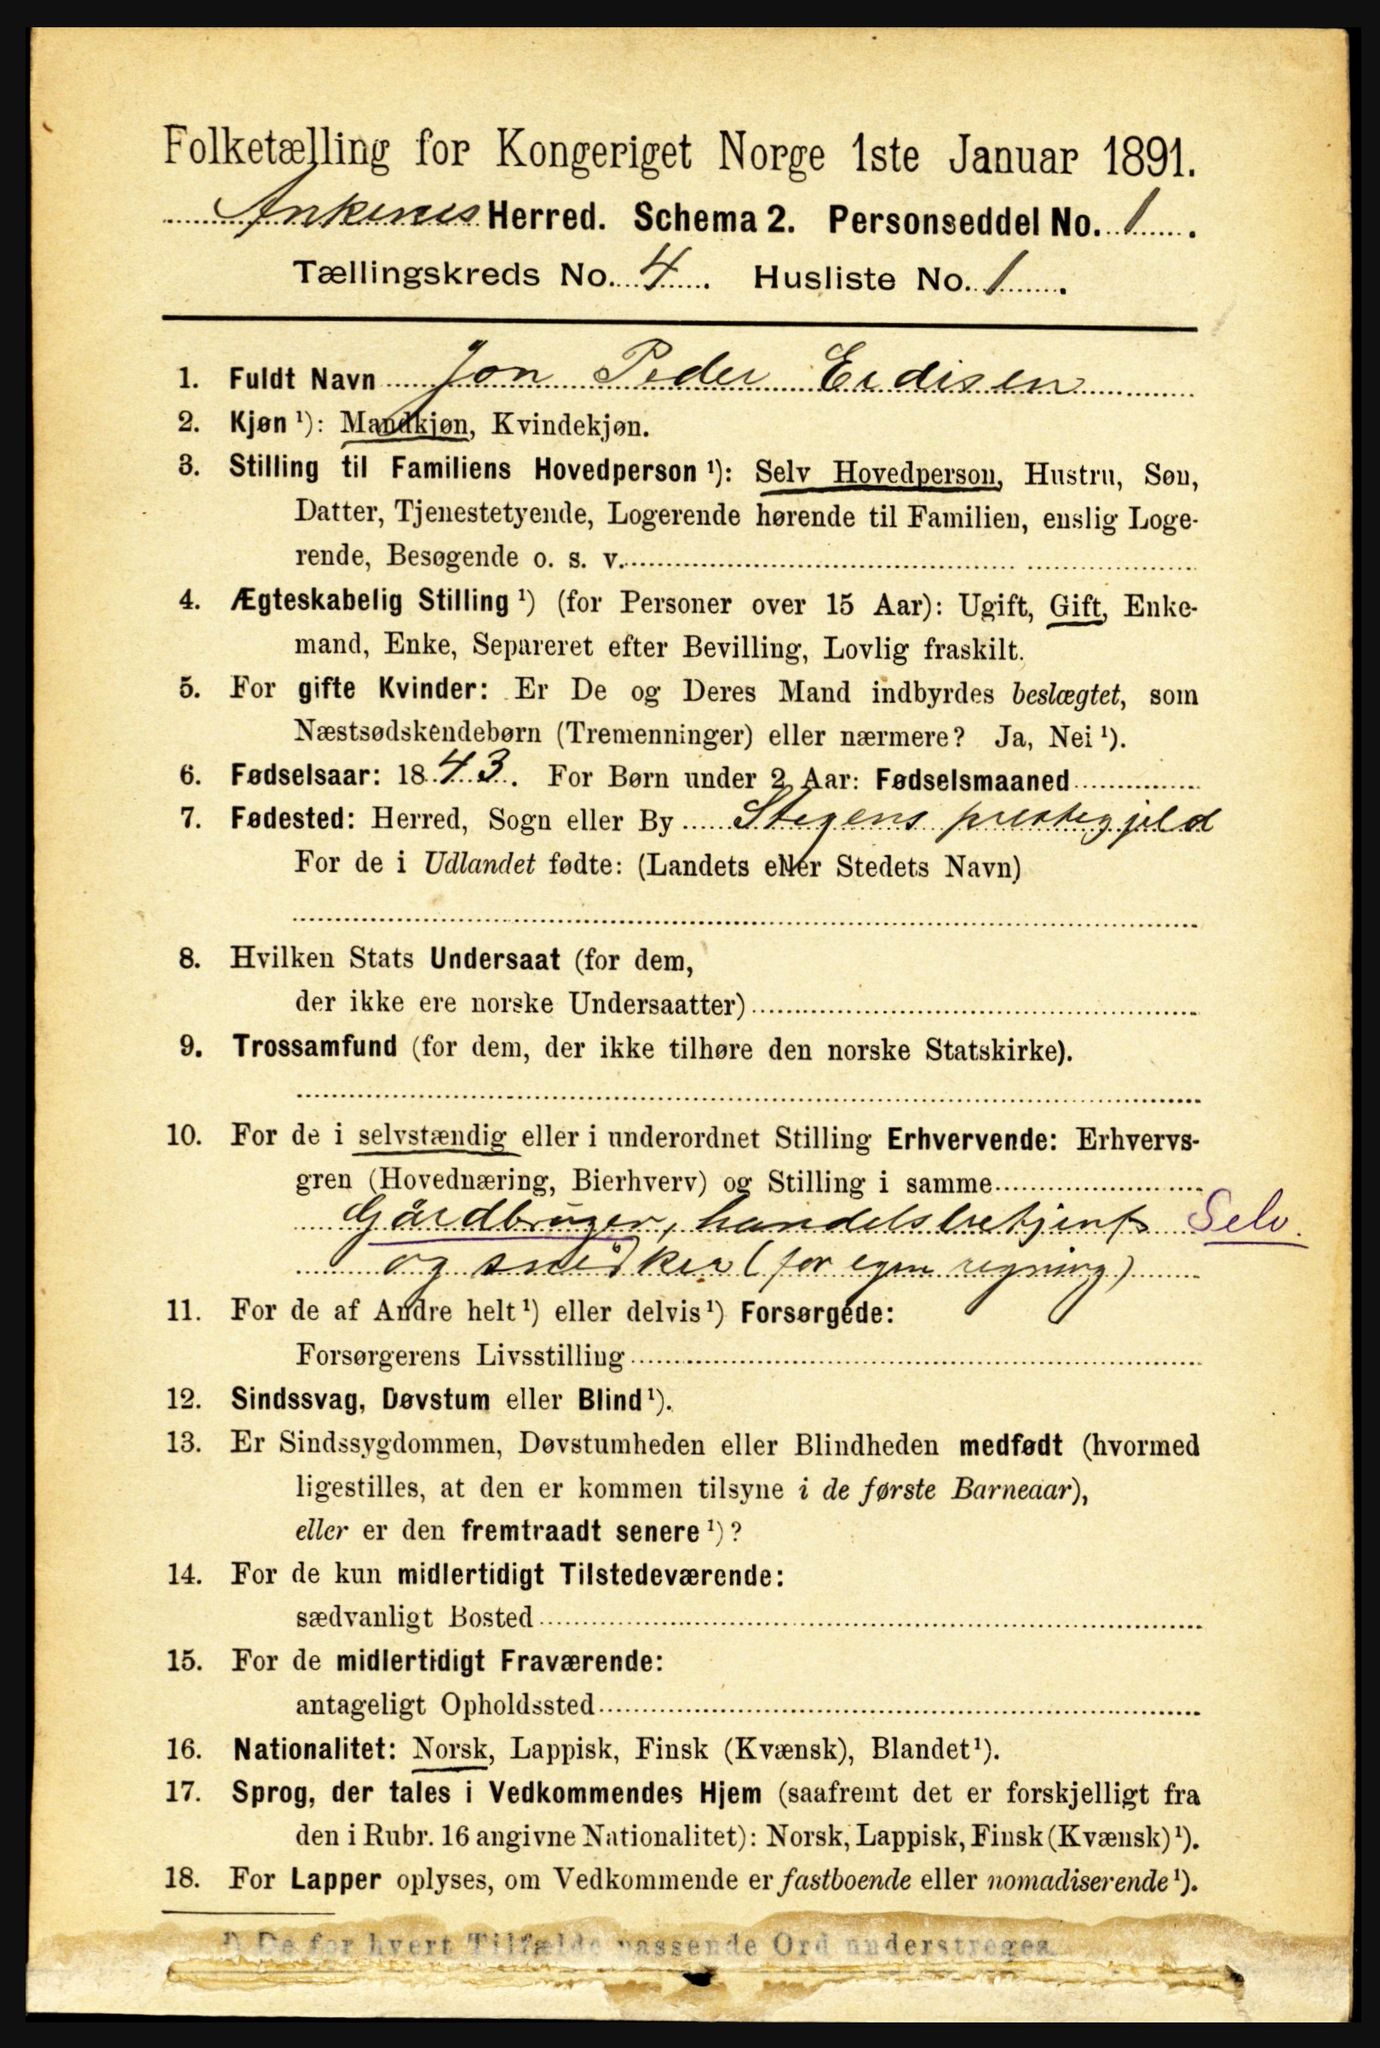 Folketælling for Kongeriget Norge 1ste Januar 1891.
Ankenes Herred. Schema 2. Personseddel No. 1.
Tællingskreds No. 4. Husliste No. 1.
1. Fuldt Navn Jon Peder Erdisen
2. Kjøn ¹): Mandkjøn, Kvindekjøn.
3. Stilling til Familiens Hovedperson ¹): Selv Hovedperson, Hustru, Søn,
Datter, Tjenestetyende, Logerende hørende til Familien, enslig Loge-
rende, Besøgende o. s. v.
4. Ægteskabelig Stilling ¹) (for Personer over 15 Aar): Ugift, Gift, Enke-
mand, Enke, Separeret efter Bevilling, Lovlig fraskilt.
5. For gifte Kvinder: Er De og Deres Mand indbyrdes beslægtet, som
Næstsødskendebørn (Tremenninger) eller nærmere? Ja, Nei ¹).
6. Fødselsaar: 1843. For Børn under 2 Aar: Fødselsmaaned
7. Fødested: Herred, Sogn eller By Stegens prestegjeld
For de i Udlandet fødte: (Landets eller Stedets Navn)
8. Hvilken Stats Undersaat (for dem,
der ikke ere norske Undersaatter)
9. Trossamfund (for dem, der ikke tilhøre den norske Statskirke).
10. For de i selvstændig eller i underordnet Stilling Erhvervende: Erhvervs-
gren (Hovednæring, Bierhverv) og Stilling i samme
Gårdbruger, handelsbetjent Selv.
og snedker (for egen regning)
11. For de af Andre helt ¹) eller delvis ¹) Forsørgede:
Forsørgerens Livsstilling
12. Sindssvag, Døvstum eller Blind ¹).
13. Er Sindssygdommen, Døvstumheden eller Blindheden medfødt (hvormed
ligestilles, at den er kommen tilsyne i de første Barneaar),
eller er den fremtraadt senere ¹)?
14. For de kun midlertidigt Tilstedeværende:
sædvanligt Bosted
15. For de midlertidigt Fraværende:
antageligt Opholdssted
16. Nationalitet: Norsk, Lappisk, Finsk (Kvænsk), Blandet ¹).
17. Sprog, der tales i Vedkommendes Hjem (saafremt det er forskjelligt fra
den i Rubr. 16 angivne Nationalitet): Norsk, Lappisk, Finsk (Kvænsk) ¹).
18. For Lapper oplyses, om Vedkommende er fastboende eller nomadiserende ¹).
¹) De for hvert Tilfælde passende Ord understreges.